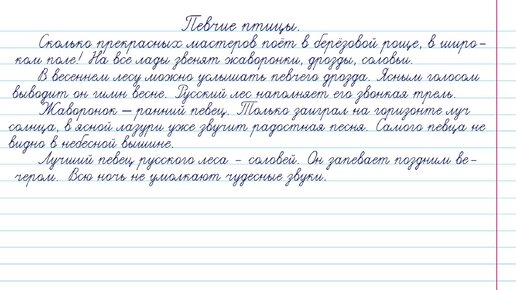 Певчие птицы.
Сколько прекрасных мастеров поёт в берёзовой роще, в широ-
ком поле! На все лады звенят жаворонки, дрозды, соловьи.
В весеннем лесу можно услышать певчего дрозда. Ясным голосом
выводит он гимн весне. Русский лес наполняет его звонкая трель.
Жаворонок – ранний певец. Только заиграл на горизонте луч
солнца, в ясной лазури уже звучит радостная песня. Самого певца не
видно в небесной вышине.
Лучший певец русского леса – соловей. Он запевает поздним ве-
чером. Всю ночь не умолкают чудесные звуки.